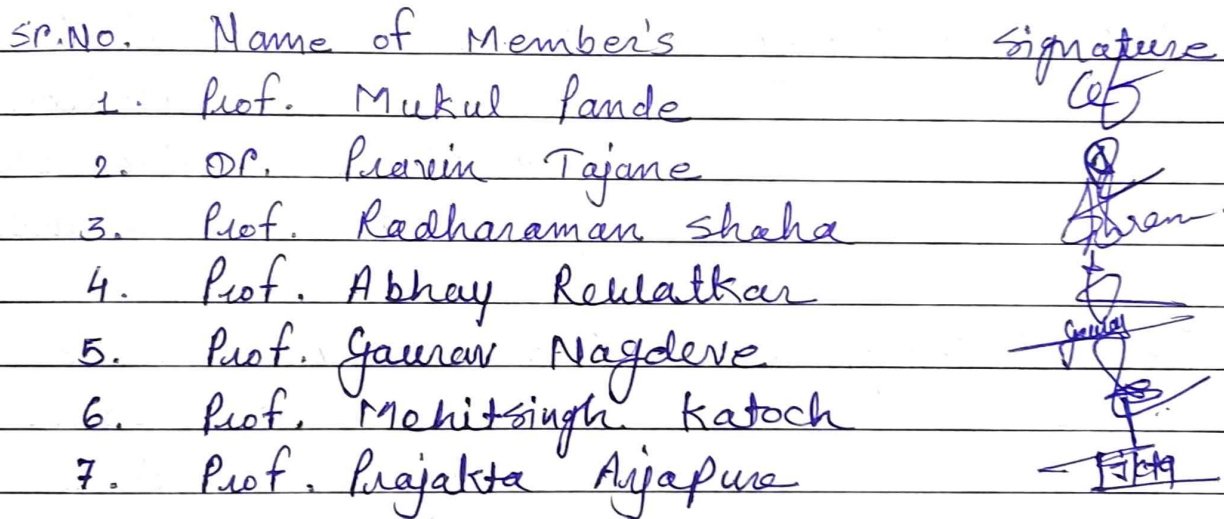 Sr.No. Name of Member's Signature
1. Prof. Mukul Pande
2. Dr. Pravin Tajane
3. Prof. Radharaman Shaha
4. Prof. Abhay Rewatkar
5. Prof. Gaurav Nagdeve
6. Prof. Mohitsingh Katoch
7. Prof. Prajakta